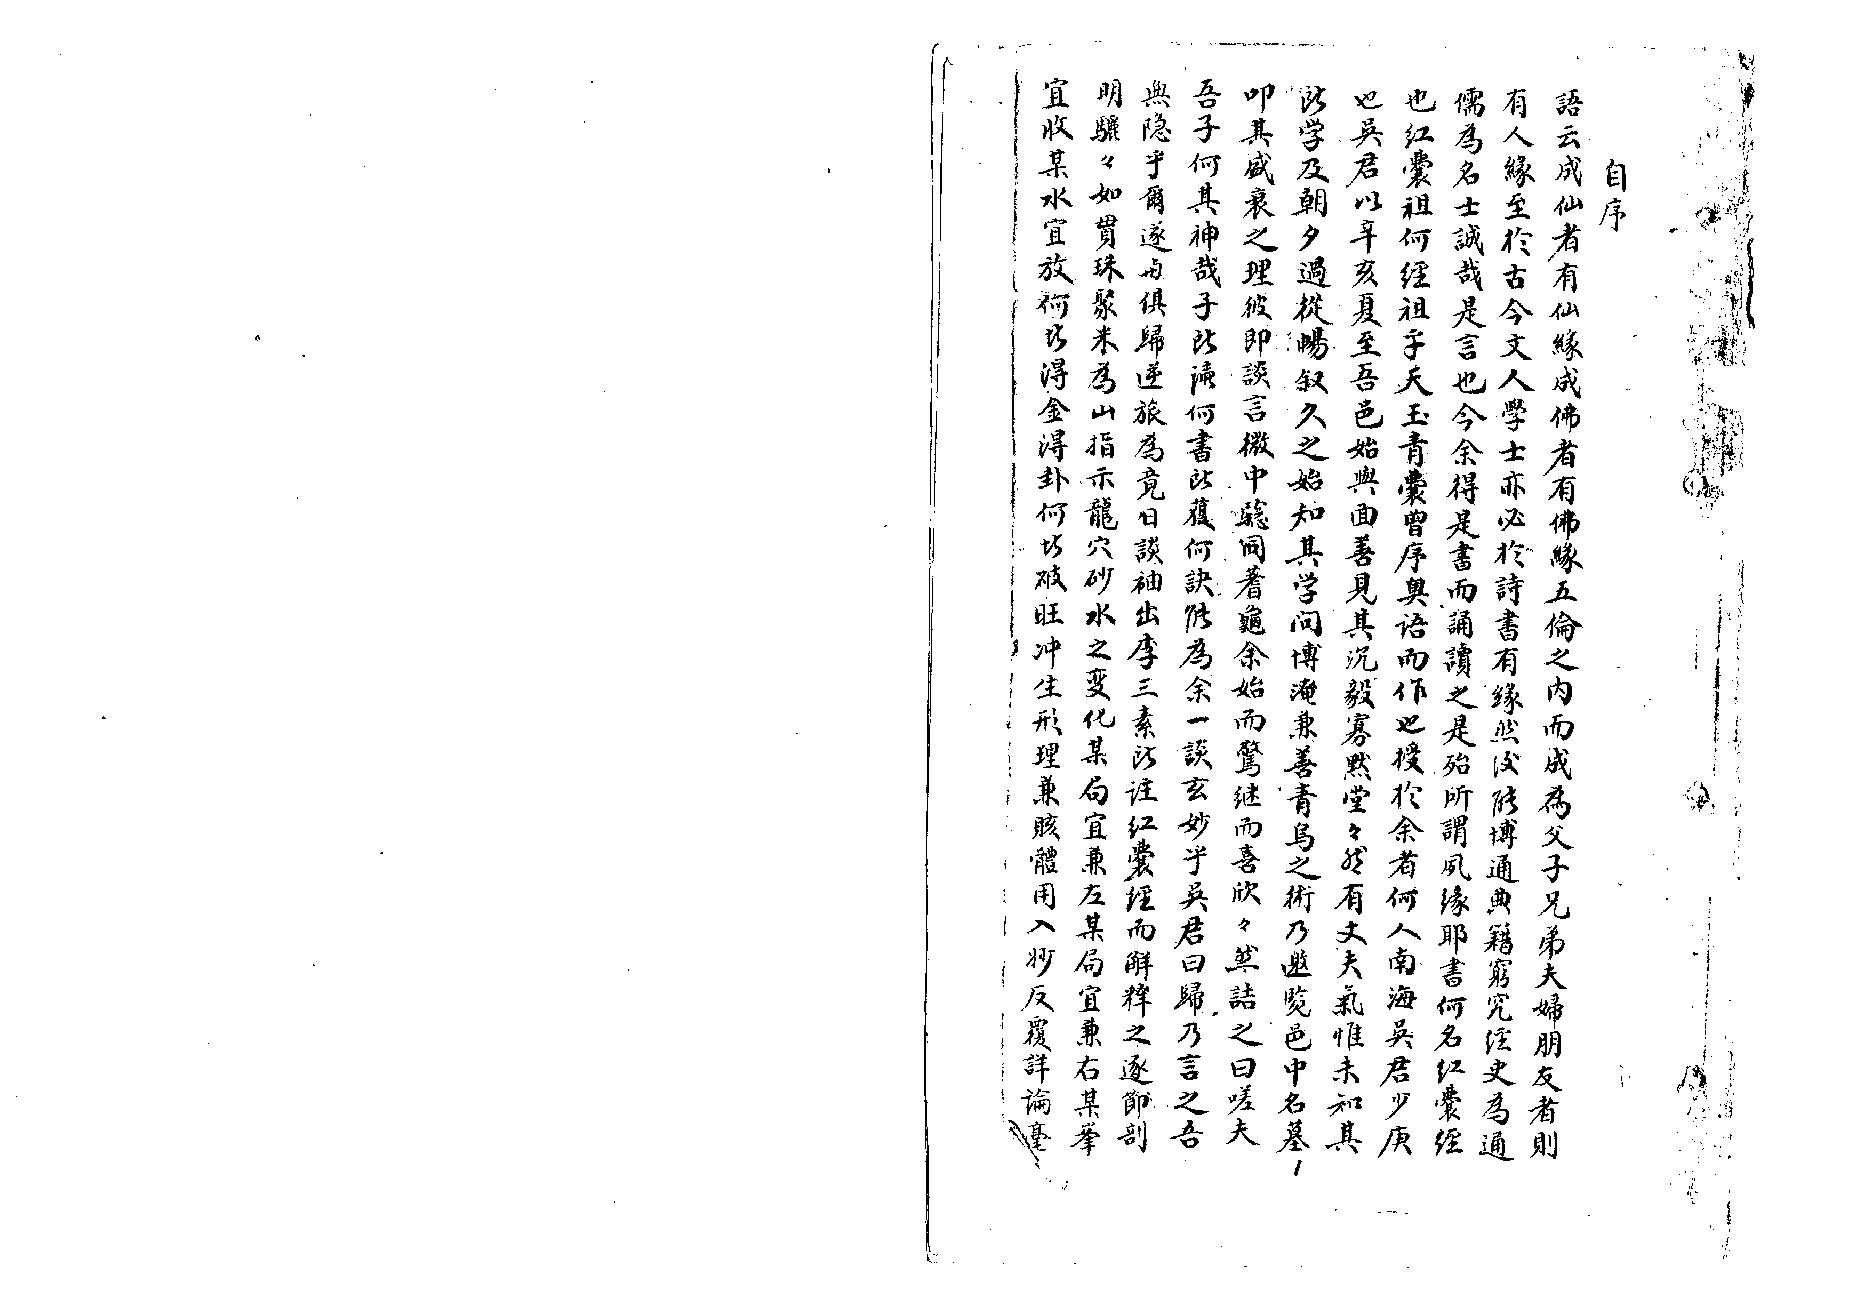 自序
語云成仙者有仙緣成佛者有佛緣五倫之内而成為父子兄弟夫婦朋友者則
有人緣至於古今文人學士亦必於詩書有緣然後能博通典籍窮究經史為通
儒為名士誠哉是言也今余得是書而誦讀之是殆所謂夙缘耶書何名红囊經
也红囊祖何經祖乎天玉青囊曾序奥语而作也授於余者何人南海吳君少庚
也吳君以辛亥夏至吾邑始與面善見其沉毅寡黙堂々然有丈夫氣惟未知其
所学及朝夕過從暢叙久之始知其学问博淹兼善青烏之術乃邀覧邑中名墓
叩其盛衰之理彼即談言微中驗同蓍龜余始而驚继而喜欣々然詰之曰嗟夫
吾子何其神哉子所讀何書所獲何訣能為余一談玄妙乎吳君曰歸乃言之吾
無隐乎爾遂与俱歸逆旅為竟日談袖出李三素所註红囊經而解釋之逐節剖
明驪々如貫珠聚米為山指示龍穴砂水之变化某局宜兼左某局宜兼右某峯
宜收某水宜放何以得金得卦何以破旺冲生形理兼賅體用入妙反覆詳論毫